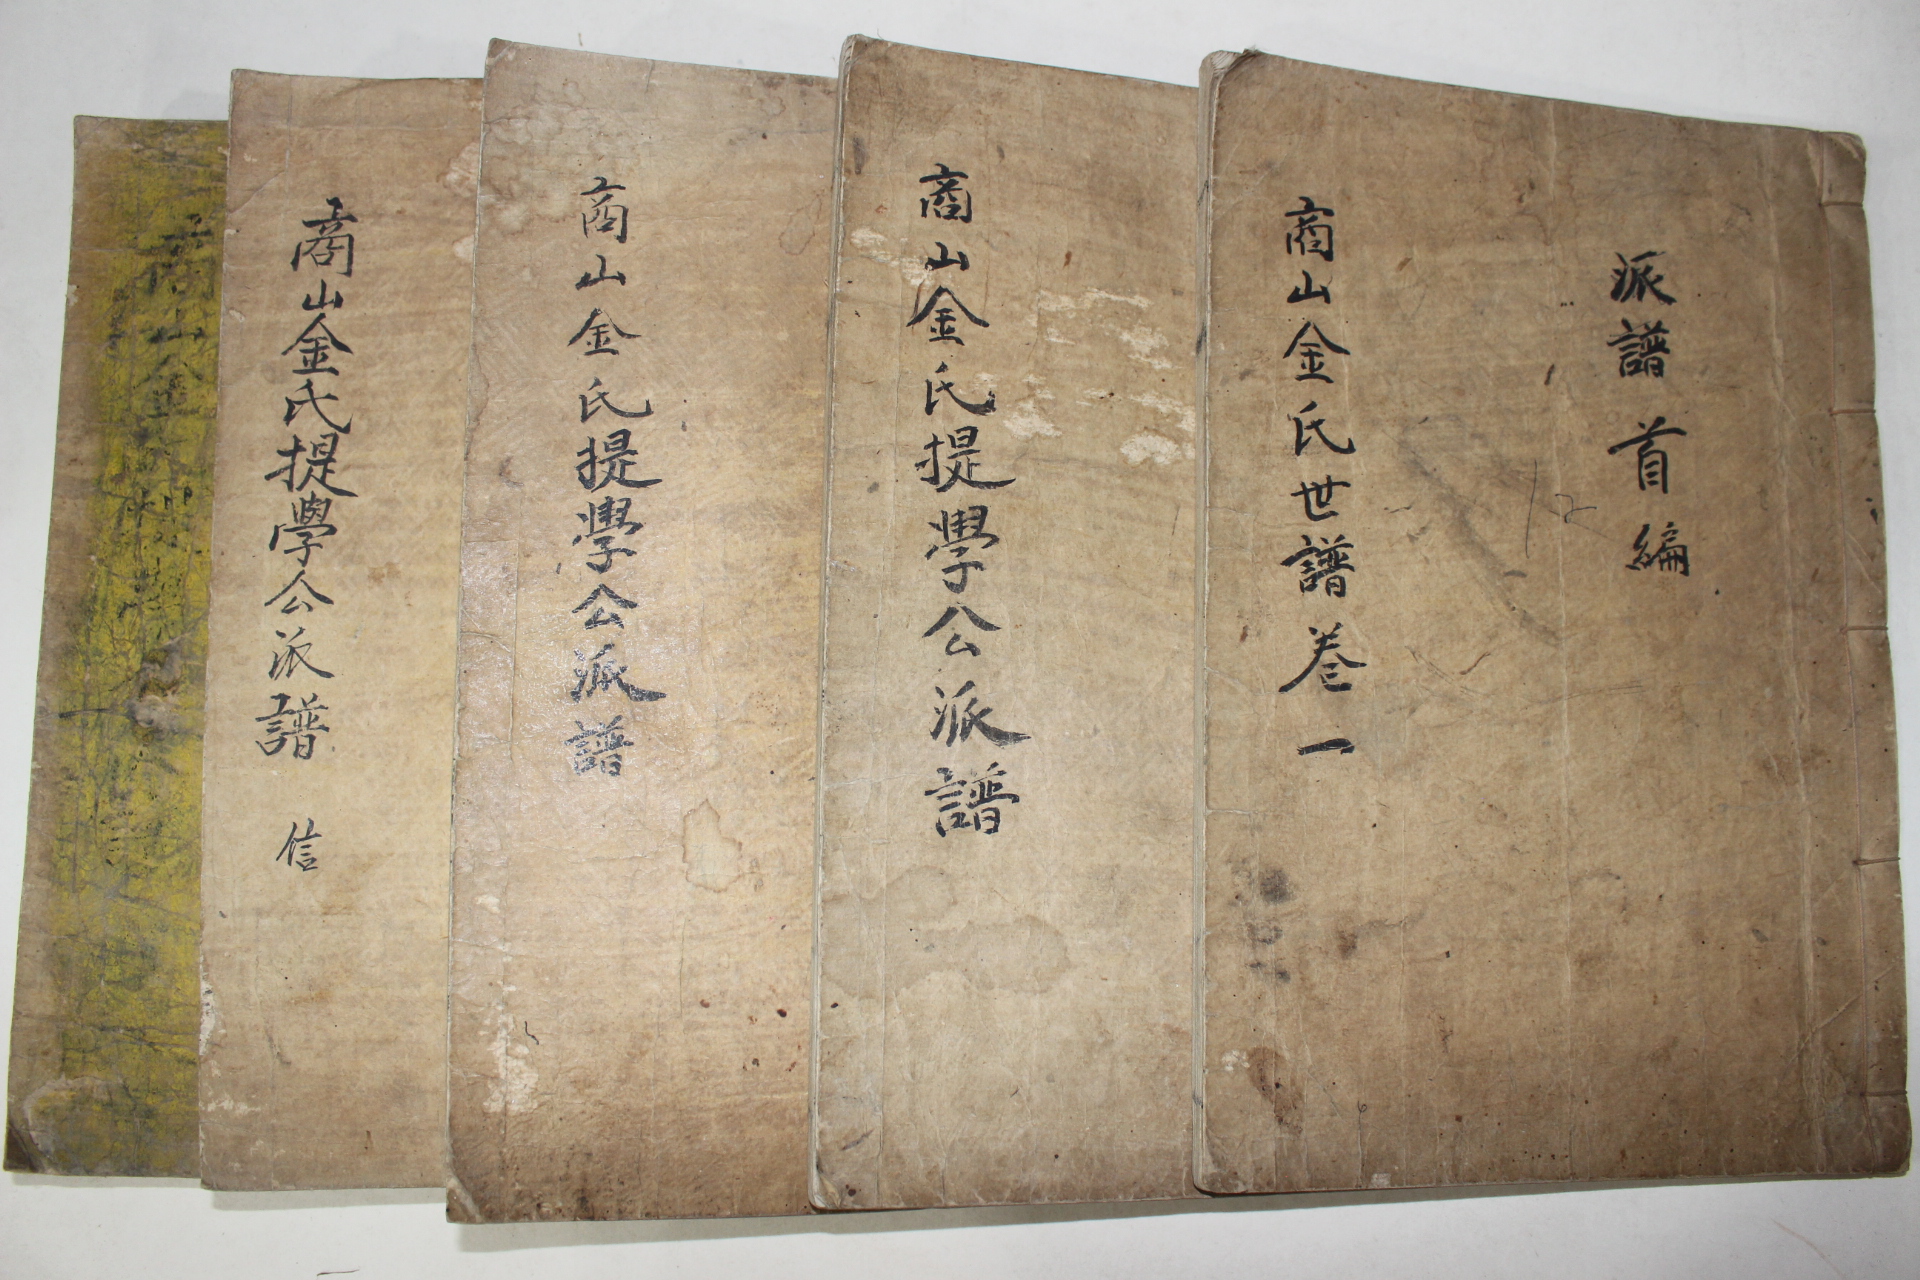 派譜首編
商山金氏世譜卷一
商山金氏提學公派譜
商山金氏提學公派譜
商山金氏提學公派譜 信
商山金氏提學公派譜